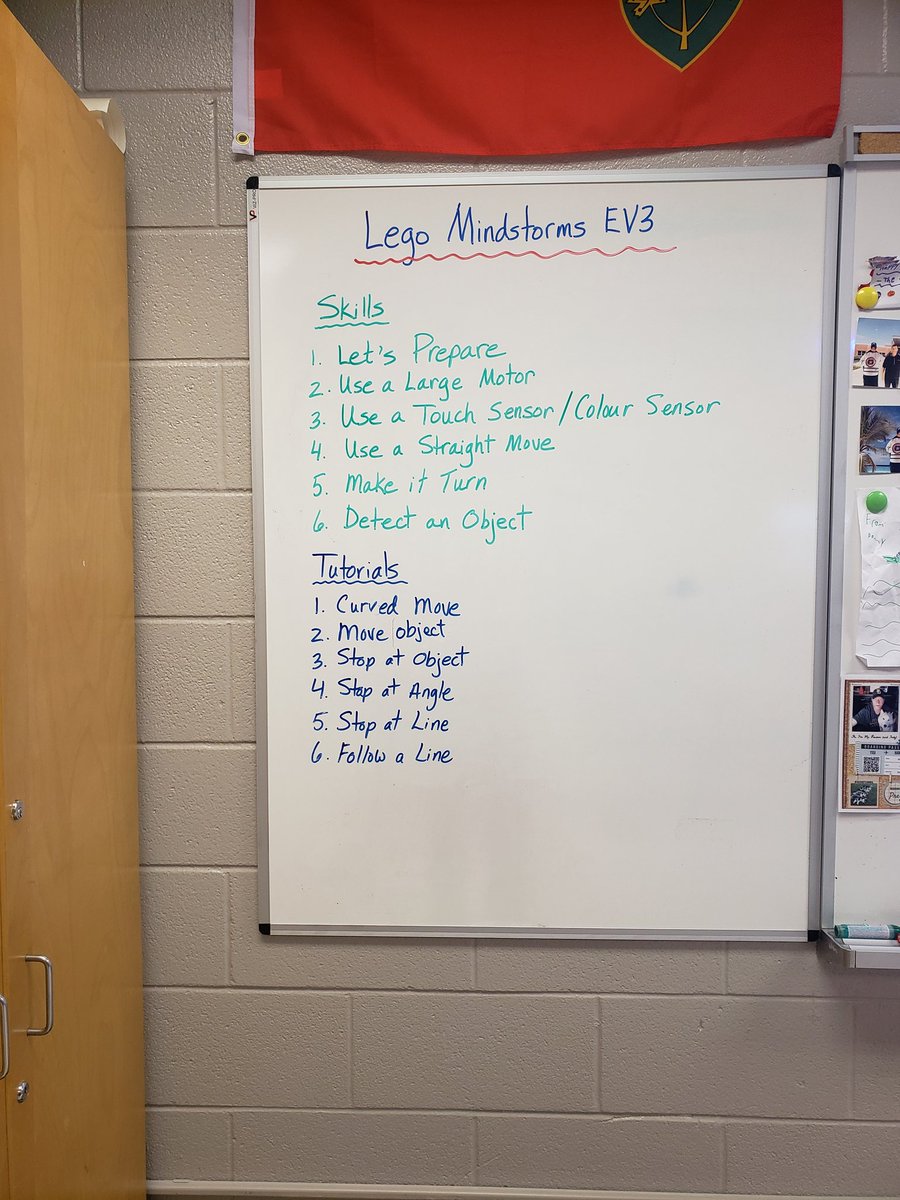 Lego Mindstorms EV3
Skills
1. Let's Prepare
2. Use a Large Motor
3. Use a Touch Sensor/Colour Sensor
4. Use a Straight Move
5. Make it Turn
6. Detect an Object
Tutorials
1. Curved Move
2. Move object
3. Stop at Object
4. Stop at Angle
5. Stop at Line
6. Follow a Line
Happy
the
From
BOARDING PASS